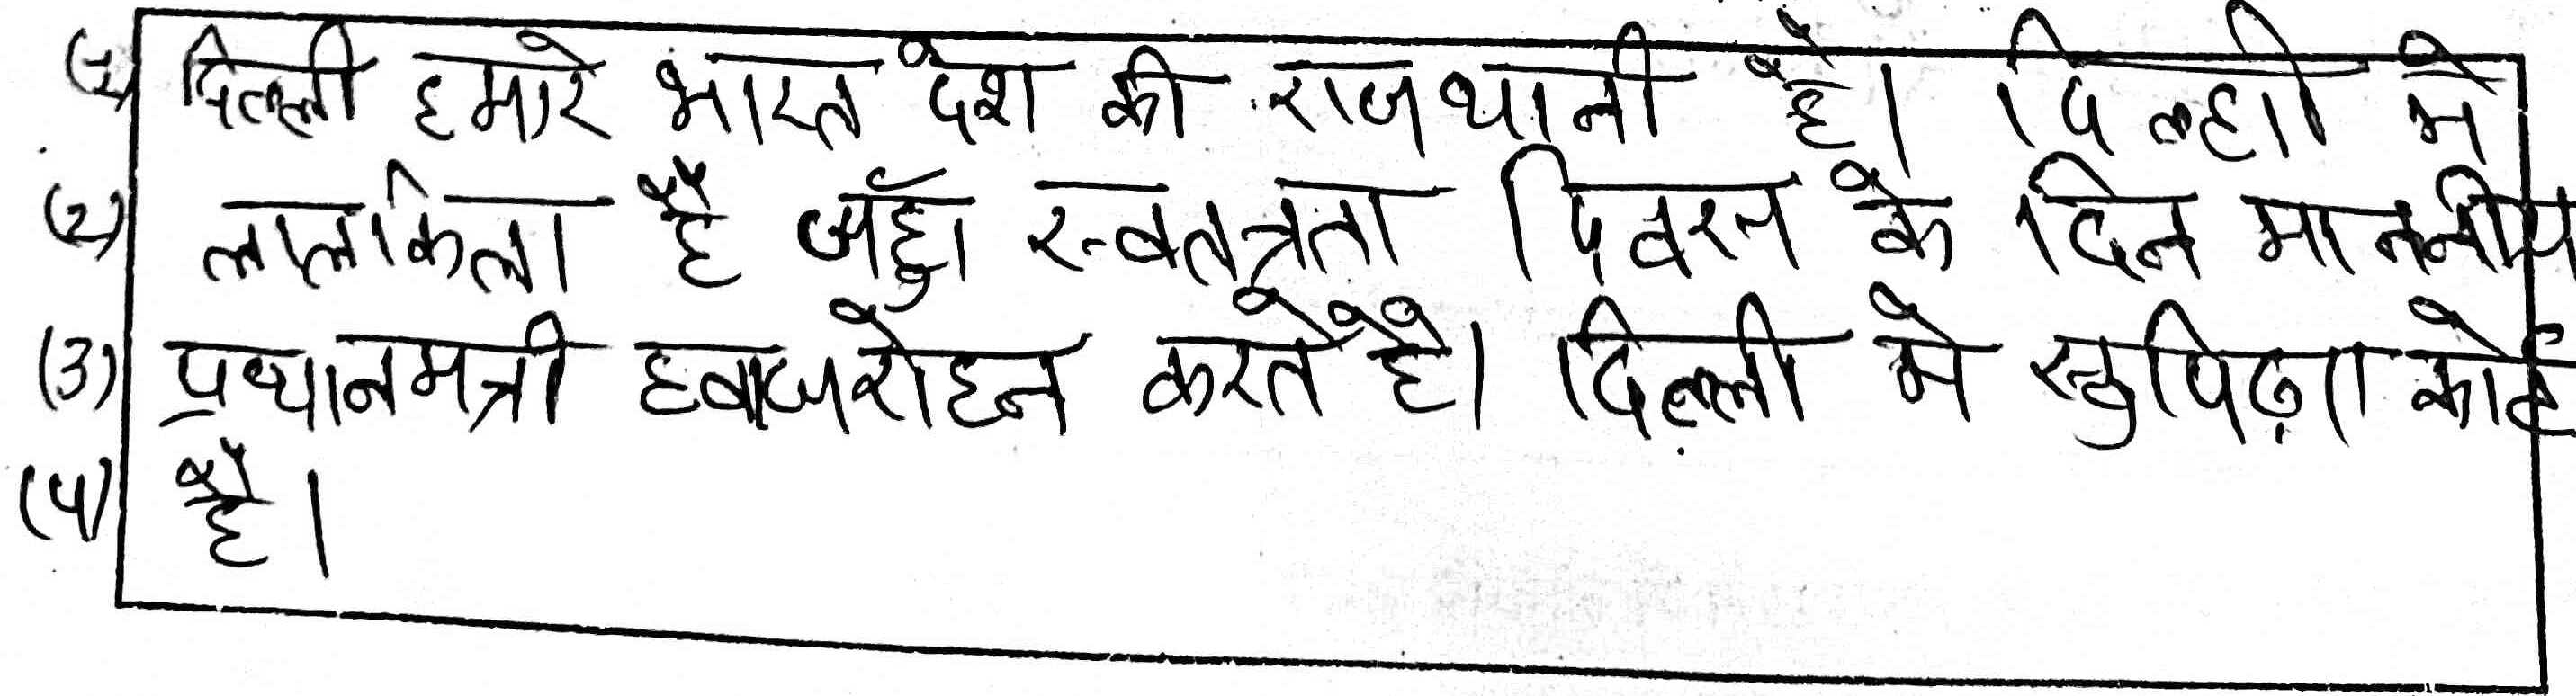 (1) दिल्ली हमारे भारत देश की राजधानी है। दिल्ली मे
(2) लालकिला है जहाँ स्वतत्रता दिवस के दिन माननीय
(3) प्रधानमत्री हवाजरोहन करते है। दिल्ली मे कोर्ट
(4) है।